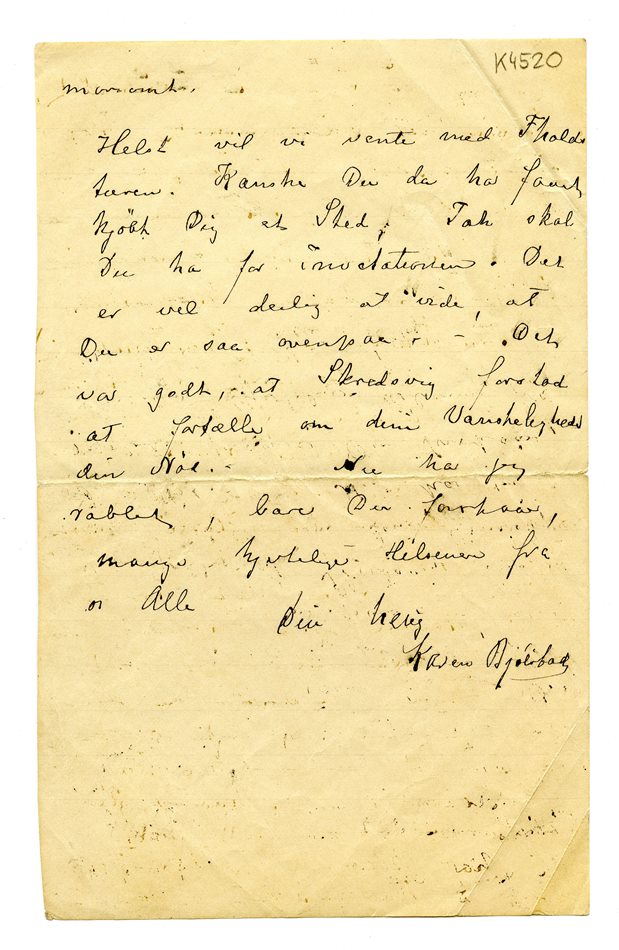 K4520
morsomt.
Helst vil vi vente med Tholds
tæren. Kanske Du da ha faaet
kjöbt Dig et Sted, Tak skal
Du ha for invitationen. Det
er vel deilig at vide, at
Du er saa ovenpaa. – Det
var godt, at Skredsvig forstod
at fortælle om din Vanskelighed
din Nöd. – Nu ha jeg
rablet, bare Du forstaar,
mange hjertelige Hilsener fra
os Alle Din heng
Karen Bjölstad